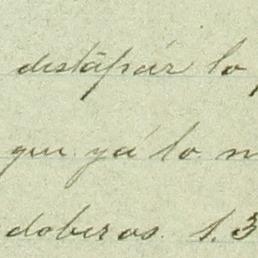 distápár lo
que yá lo
doberos. 1.3